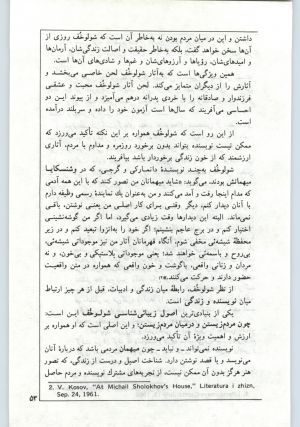 داشتن و این در میان مردم بودن نه به‌خاطر آن است که شولوخف روزی از
آن‌ها سخن خواهد گفت، بلکه به‌خاطر حقیقت و اصالت زندگی‌شان، آرمان‌ها
و امیدهای‌شان، رؤیاها و آرزوهای‌شان و غم‌ها و شادی‌های آن‌ها است.
همین ویژگی‌ها است که به‌آثار شولوخف لحن خاصی می‌بخشد و
آثارش را از دیگران متمایز می‌کند. لحن آثار شولوخف محبت و عشقی
فرزندوار و صادقانه را با خردی پدرانه درهم می‌آمیزد و از پیوند این دو
احساسی می‌آفریند که سال‌ها است آزمون خود را داده و سربلند درآمده
است.
از این رو است که شولوخف همواره بر این نکته تأکید می‌ورزد که
ممکن نیست نویسنده بتواند بدون برخورد روزمره و مداوم با مردم، آثاری
ارزشمند که از خون زندگی برخوردار باشد بیافریند.
شولوخف به‌چند نویسندهٔ دانمارکی و گرجی، که در وشنسکایا
میهمانش بودند، می‌گوید: «شاید میهمانان من تصور کنند که با این همه آدمی
که مدام اینجا رفت و آمد می‌کنند و من به‌عنوان یك نمایندهٔ رسمی وظیفه دارم
با آنان دیدار کنم، دیگر وقتی برای کار اصلی من یعنی نوشتن، باقی
نمی‌ماند. البته این دیدارها وقت زیادی می‌گیرد، اما اگر من گوشه‌نشینی
اختیار کنم و در برج عاجم بنشینم؛ اگر خود را به‌انزوا تبعید کنم و در زیر
محفظهٔ شیشه‌ئی مخفی شوم، آنگاه قهرمانان آثار من نیز موجوداتی شیشه‌ئی،
بی‌روح و باسمه‌ئی خواهند شد؛ یعنی موجوداتی پلاستیکی و بی‌خون، و نه
مردان و زنانی واقعی، باگوشت و خون واقعی که همواره در متن واقعیت
حضور دارند و حرکت می‌کنند.»۲
از نظر شولوخف، رابطهٔ میان زندگی و ادبیات، قبل از هر چیز ارتباط
میان نویسنده و زندگی است.
یکی از بنیادی‌ترین اصول زیبائی‌شناسی شولوخف این است:
چون مردم زیستن و درمیان مردم زیستن؛ و این اصلی است که او همواره بر
ارزش و اهمیت ویژهٔ آن تأکید می‌ورزد.
نویسنده نمی‌تواند ـ و نباید ـ چون میهمان مردمی باشد که دربارهٔ آنان
می‌نویسد و یا قصد نوشتن دارد. شناخت اصیل و درست از زندگی، که تصور
هنر هرگز بدون آن ممکن نیست، از تجربه‌های مشترك نویسنده و مردم حاصل
2. V. Kosov, "At Michail Sholokhov's House," Literatura i zhizn,
Sep. 24, 1961.
۵۳